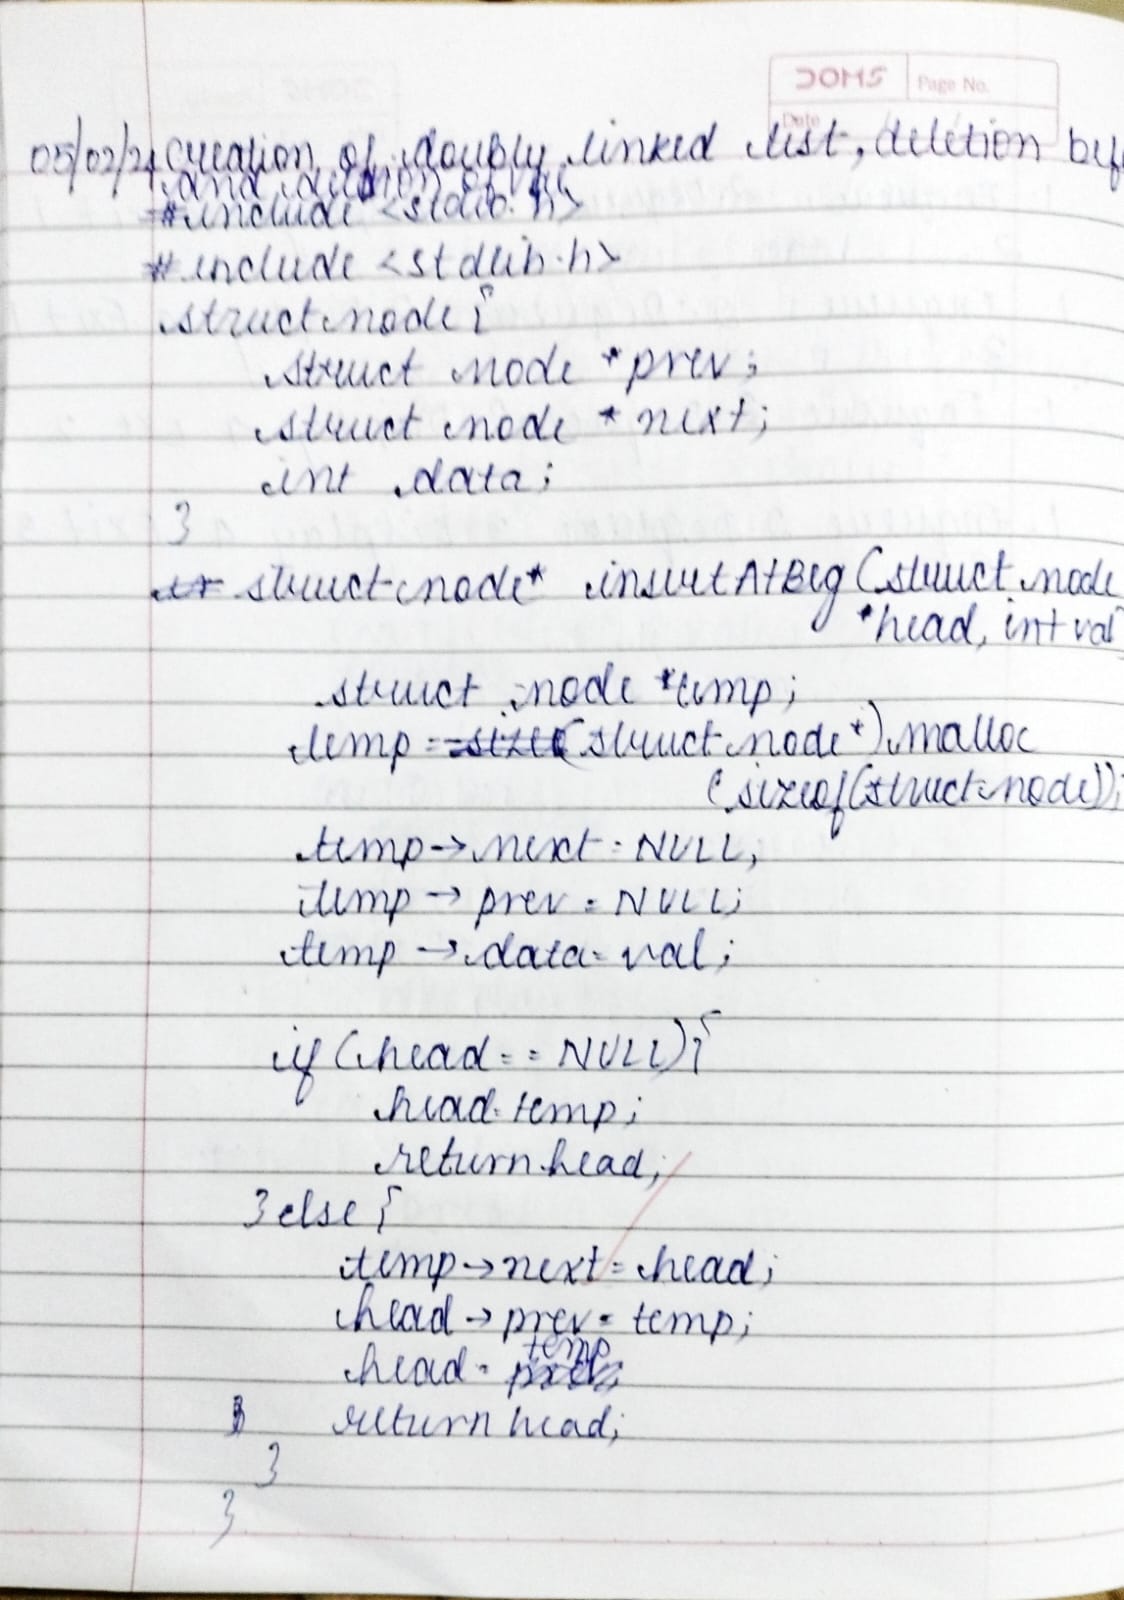 DOMS Page No.
Date
05/02/24 creation of doubly linked list, deletion bef
and deletion of val
#include <stdio.h>
#include <stdlib.h>
struct node {
struct node *prev;
struct node *next;
int data;
}
struct node* insertAtBeg (struct node
*head, int val
struct node *temp;
temp = (struct node*) malloc
(sizeof(struct node));
temp → next = NULL;
temp → prev = NULL;
temp → data = val;
if (head == NULL) {
head = temp;
return head;
} else {
temp → next = head;
head → prev = temp;
head = temp
return head;
}
}